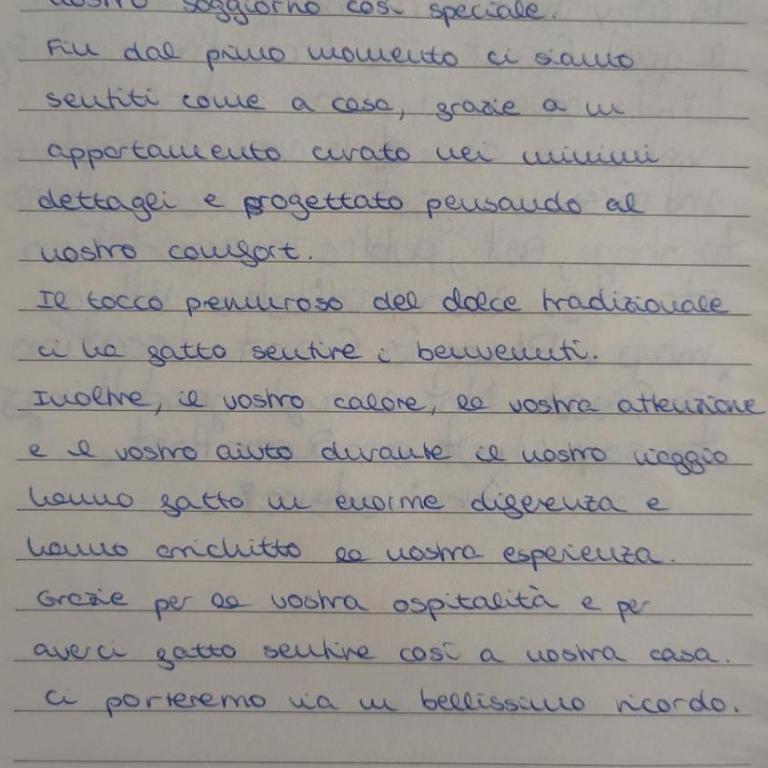 nostro soggiorno così speciale.
Fin dal primo momento ci siamo
sentiti come a casa, grazie a un
appartamento curato nei minimi
dettagli e progettato pensando al
nostro comfort.
Il tocco premuroso del dolce tradizionale
ci ha fatto sentire i benvenuti.
Inoltre, il vostro calore, la vostra attenzione
e il vostro aiuto durante il nostro viaggio
hanno fatto un enorme diferenza e
hanno arrichitto la nostra esperienza.
Grazie per la vostra ospitalità e per
averci fatto sentire così a nostra casa.
Ci porteremo via un bellissimo ricordo.